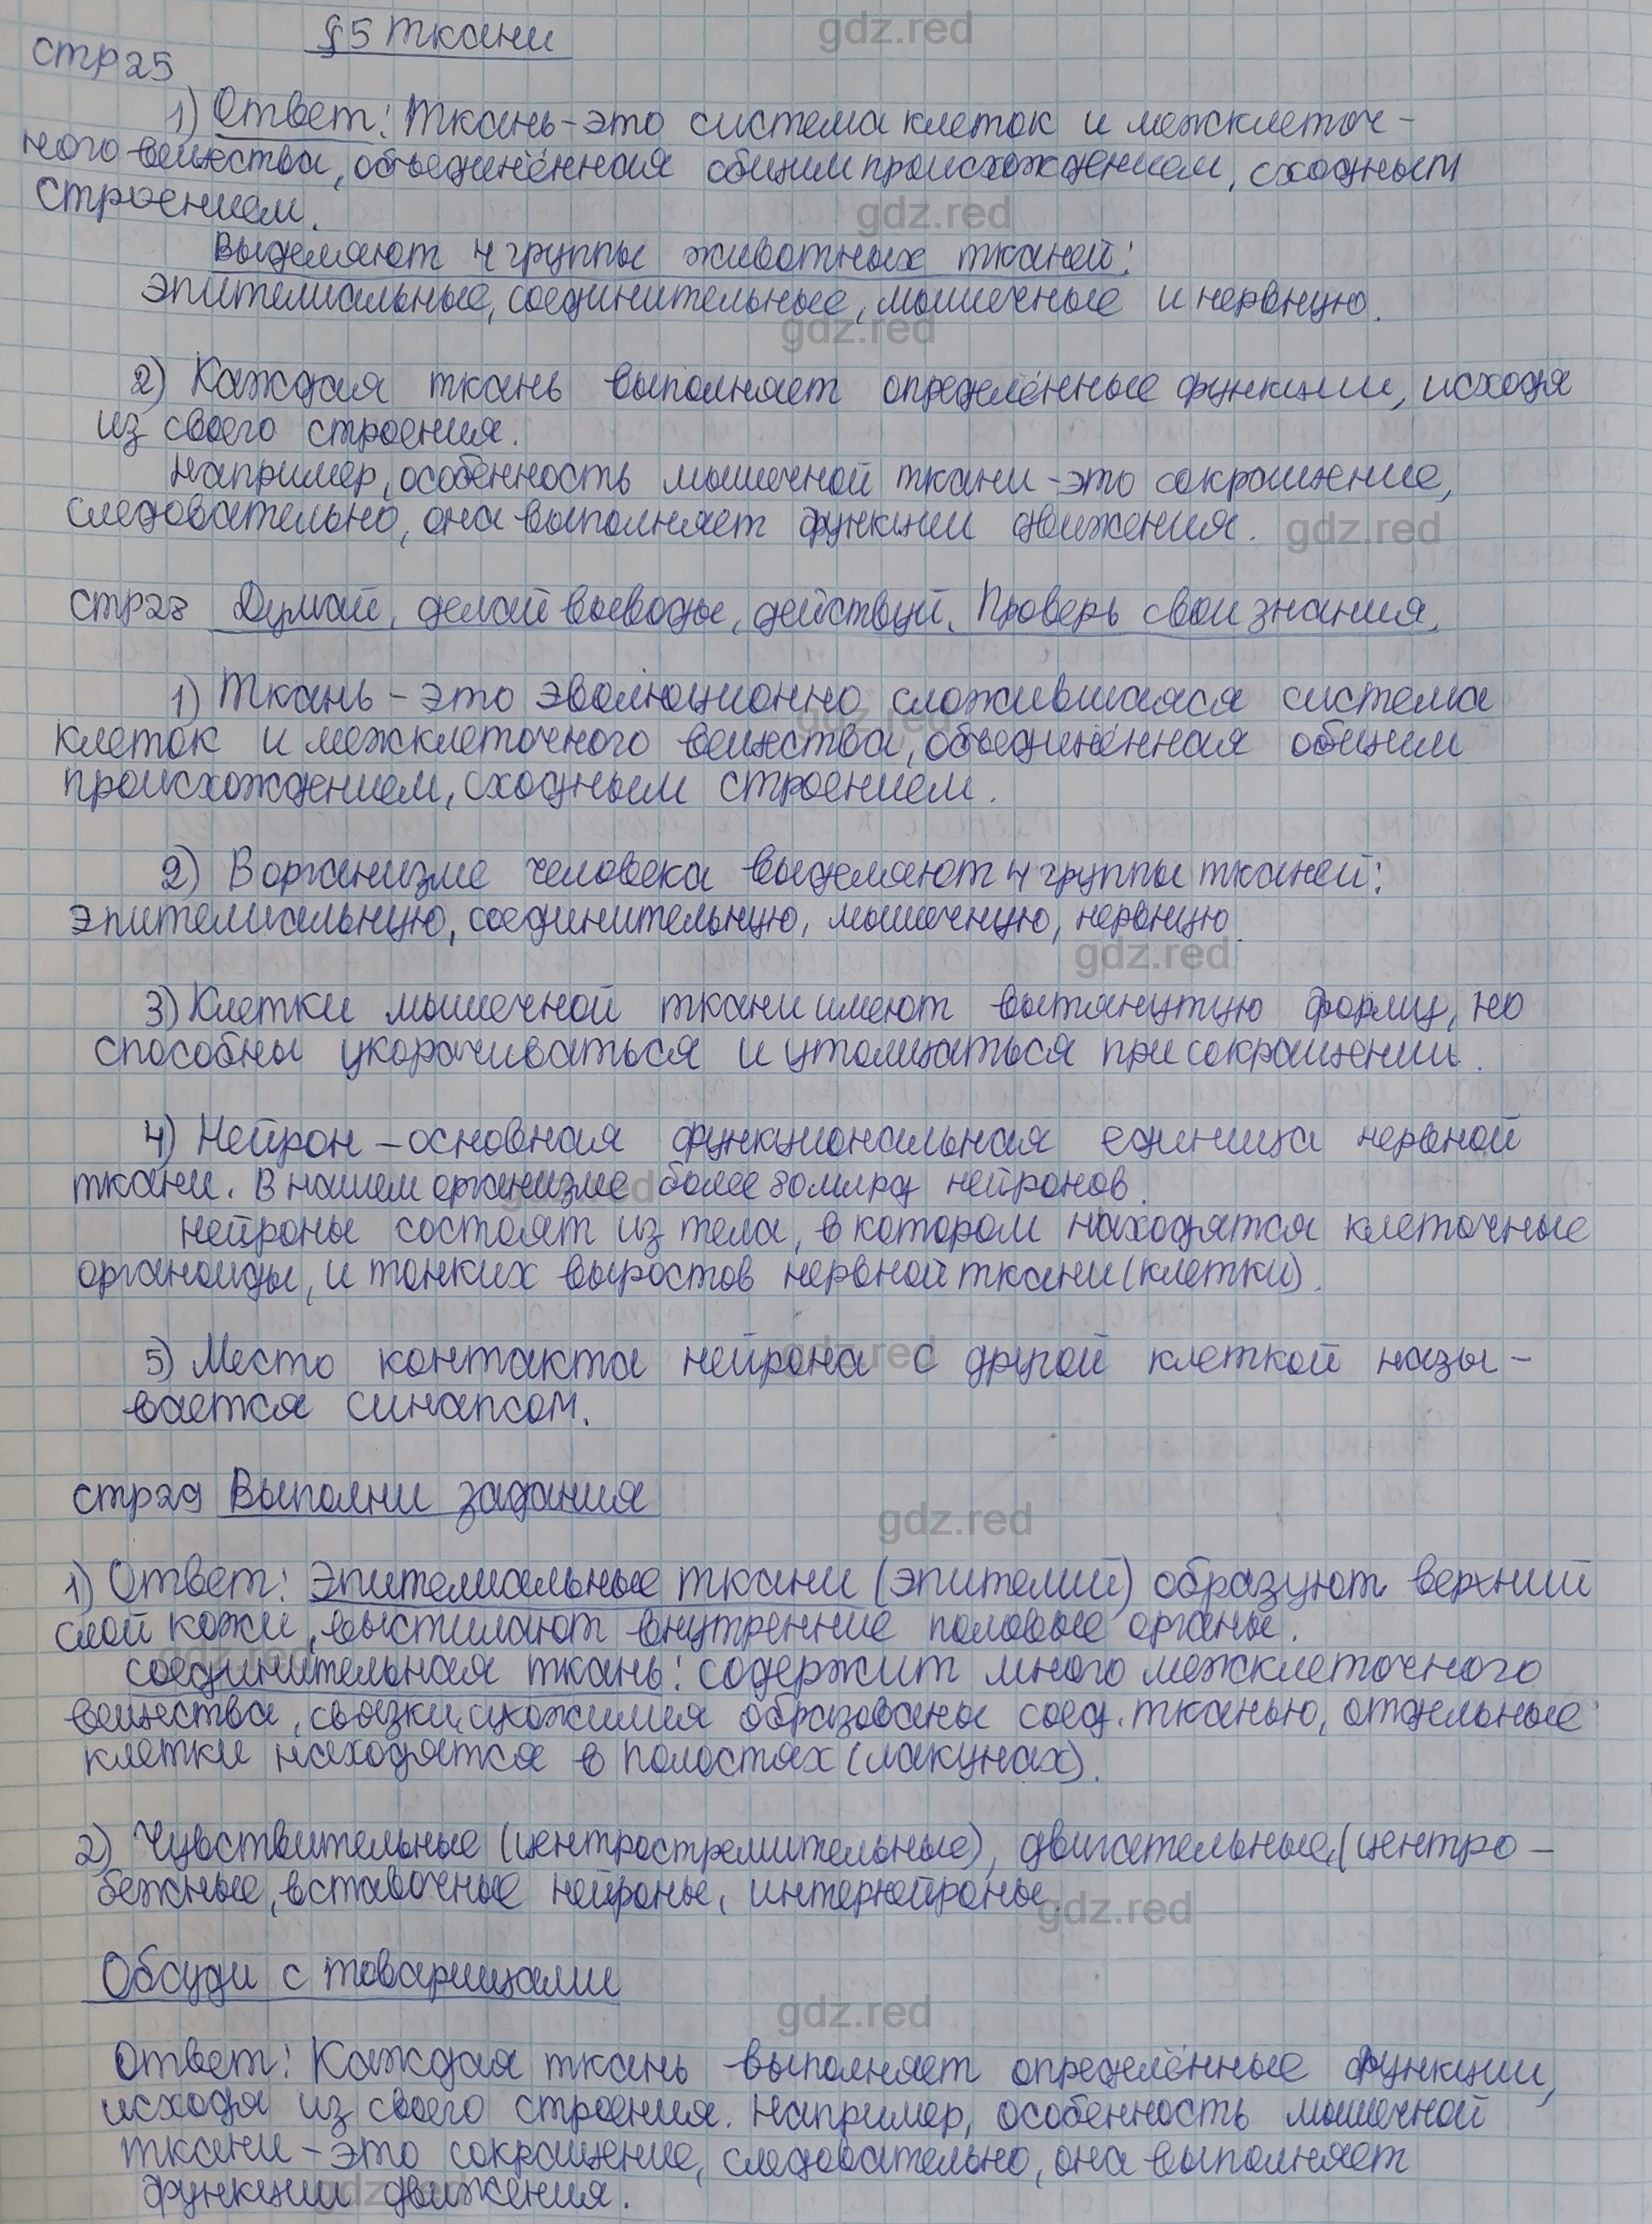 §5 Ткани
gdz.red
стр25
1) Ответ: Ткань - это система клеток и межклеточ-
ного вещества, объединённая общим происхождением, сходным
строением.
gdz.red
Выделяют 4 группы животных тканей:
эпителиальные, соединительные, мышечные и нервную.
gdz.red
2) Каждая ткань выполняет определённые функции, исходя
из своего строения.
Например, особенность мышечной ткани - это сокращение,
следовательно, она выполняет функции движения.
gdz.red
стр28 Думай, делай выводы, действуй. Проверь свои знания.
1) Ткань - это эволюционно сложившаяся система
gdz.red
клеток и межклеточного вещества, объединённая общим
происхождением, сходным строением.
2) В организме человека выделяют 4 группы тканей:
эпителиальную, соединительную, мышечную, нервную.
gdz.red
3) Клетки мышечной ткани имеют вытянутую форму, но
способны укорачиваться и утолщаться при сокращении.
4) Нейрон - основная функциональная единица нервной
ткани. В нашем организме более 80 млрд нейронов.
gdz.red
Нейроны состоят из тела, в котором находятся клеточные
органоиды, и тонких выростов нервной ткани (клетки).
5) Место контакта нейрона с другой клеткой назы-
gdz.red
вается синапсом.
стр29 Выполни задания
gdz.red
1) Ответ: Эпителиальные ткани (эпителий) образуют верхний
слой кожи, выстилают внутренние половые органы.
gdz.red
соединительная ткань: содержит много межклеточного
вещества, связки, сухожилия образованы соед. тканью, отдельные
клетки находятся в полостях (лакунах).
2) Чувствительные (центростремительные), двигательные, (центро-
бежные, вставочные нейроны, интернейроны.
gdz.red
Обсуди с товарищами
gdz.red
Ответ: Каждая ткань выполняет определённые функции,
исходя из своего строения. Например, особенность мышечной
ткани - это сокращение, следовательно, она выполняет
функции движения.
gdz.red